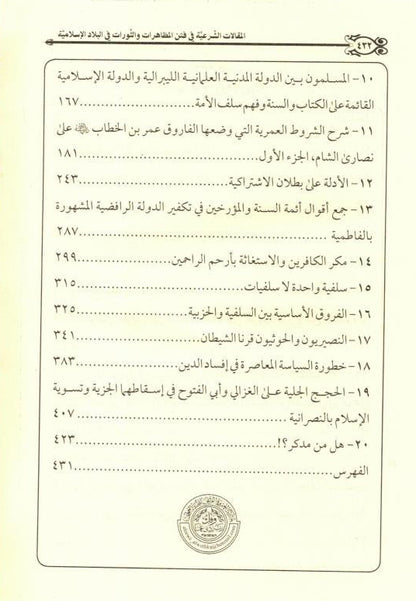 المقالات الشرعية في فتن المظاهرات والثورات في البلاد الإسلامية
٤٣٢
١٠- المسلمون بين الدولة المدنية العلمانية الليبرالية والدولة الإسلامية
القائمة على الكتاب والسنة وفهم سلف الأمة..........................١٦٧
١١- شرح الشروط العمرية التي وضعها الفاروق عمر بن الخطاب ﷺ على
نصارى الشام، الجزء الأول..........................١٨١
١٢- الأدلة على بطلان الاشتراكية..........................٢٤٣
١٣- جمع أقوال أئمة السنة والمؤرخين في تكفير الدولة الرافضية المشهورة
بالفاطمية..........................٢٨٧
١٤- مكر الكافرين والاستغاثة بأرحم الراحمين..........................٢٩٩
١٥- سلفية واحدة لا سلفيات..........................٣١٥
١٦- الفروق الأساسية بين السلفية والحزبية..........................٣٢٥
١٧- النصيريون والحوثيون قرنا الشيطان..........................٣٤١
١٨- خطورة السياسة المعاصرة في إفساد الدين..........................٣٨٣
١٩- الحجج الجلية على الغزالي وأبي الفتوح في إسقاطهما الجزية وتسوية
الإسلام بالنصرانية..........................٤٠٧
٢٠- هل من مدكر؟!..........................٤٢٣
الفهرس..........................٤٣١